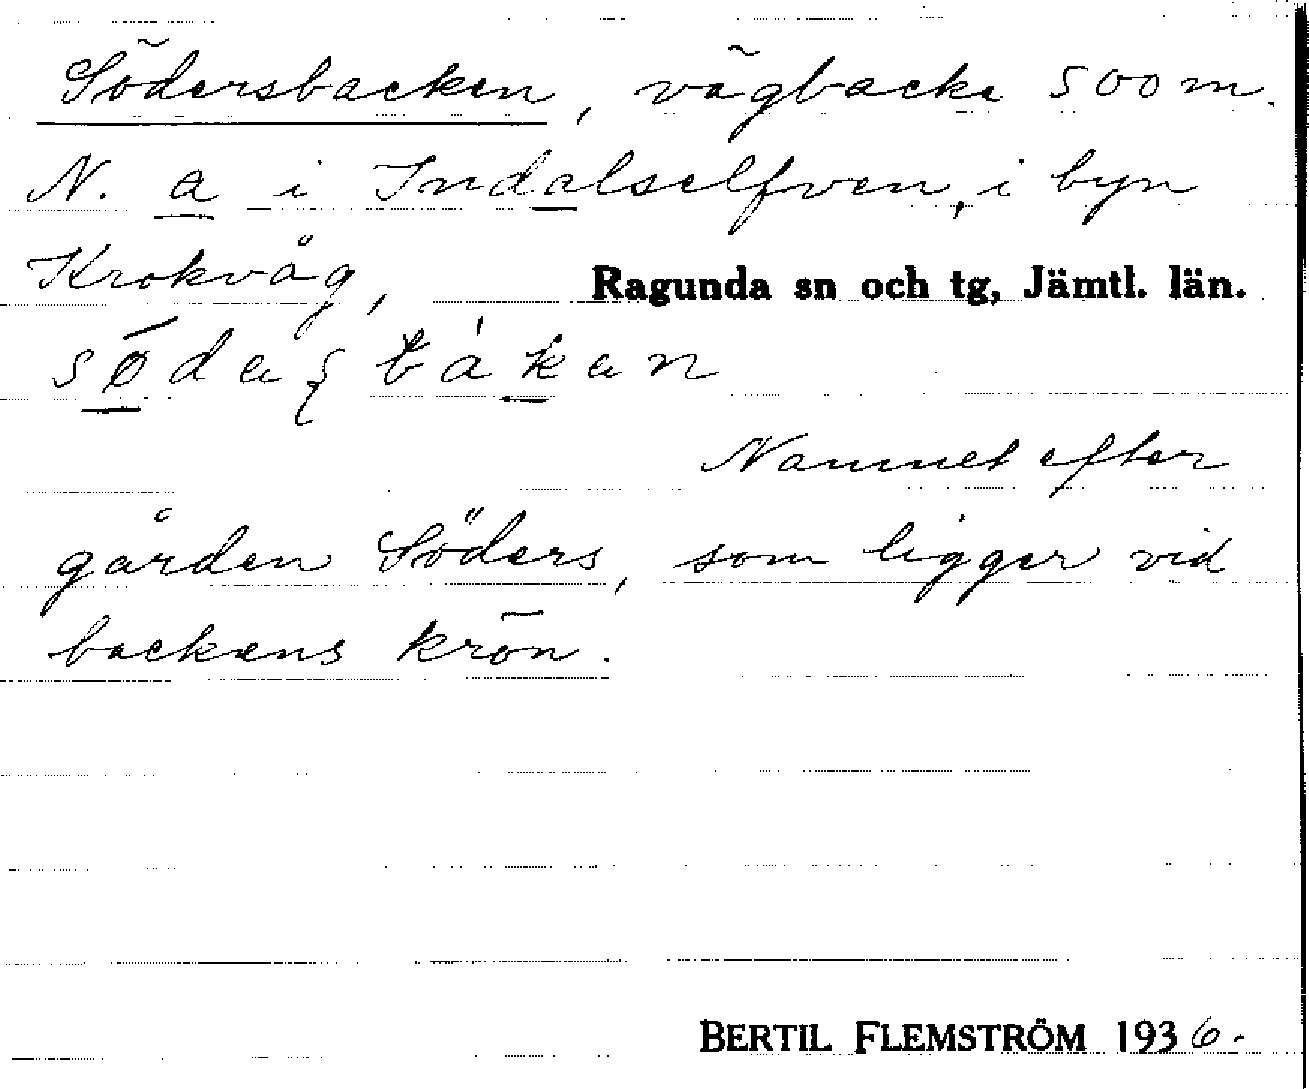 Södersbacken, vägbacke 500 m.
N. a i Indalselfven, i byn
Krokvåg, Ragunda sn och tg, Jämtl. län.
Namnet efter
gården Söders, som ligger vid
backens krön.
BERTIL FLEMSTRÖM 1936.